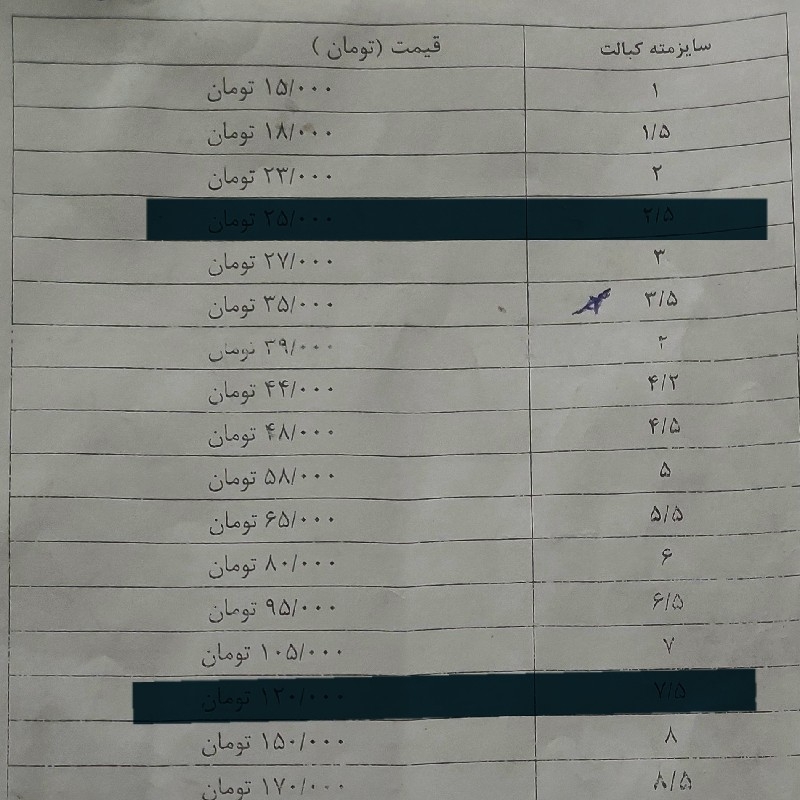 سایزمته کبالت قیمت (تومان )
۱ ۱۵/۰۰۰ تومان
۱/۵ ۱۸/۰۰۰ تومان
۲ ۲۳/۰۰۰ تومان
۲/۵ ۲۵/۰۰۰ تومان
۳ ۲۷/۰۰۰ تومان
۳/۵ ۳۵/۰۰۰ تومان
۳۹/۰۰۰ تومان
۴/۲ ۴۴/۰۰۰ تومان
۴/۵ ۴۸/۰۰۰ تومان
۵ ۵۸/۰۰۰ تومان
۵/۵ ۶۵/۰۰۰ تومان
۶ ۸۰/۰۰۰ تومان
۶/۵ ۹۵/۰۰۰ تومان
۷ ۱۰۵/۰۰۰ تومان
۷/۵ ۱۲۰/۰۰۰ تومان
۸ ۱۵۰/۰۰۰ تومان
۸/۵ ۱۷۰/۰۰۰ تومان